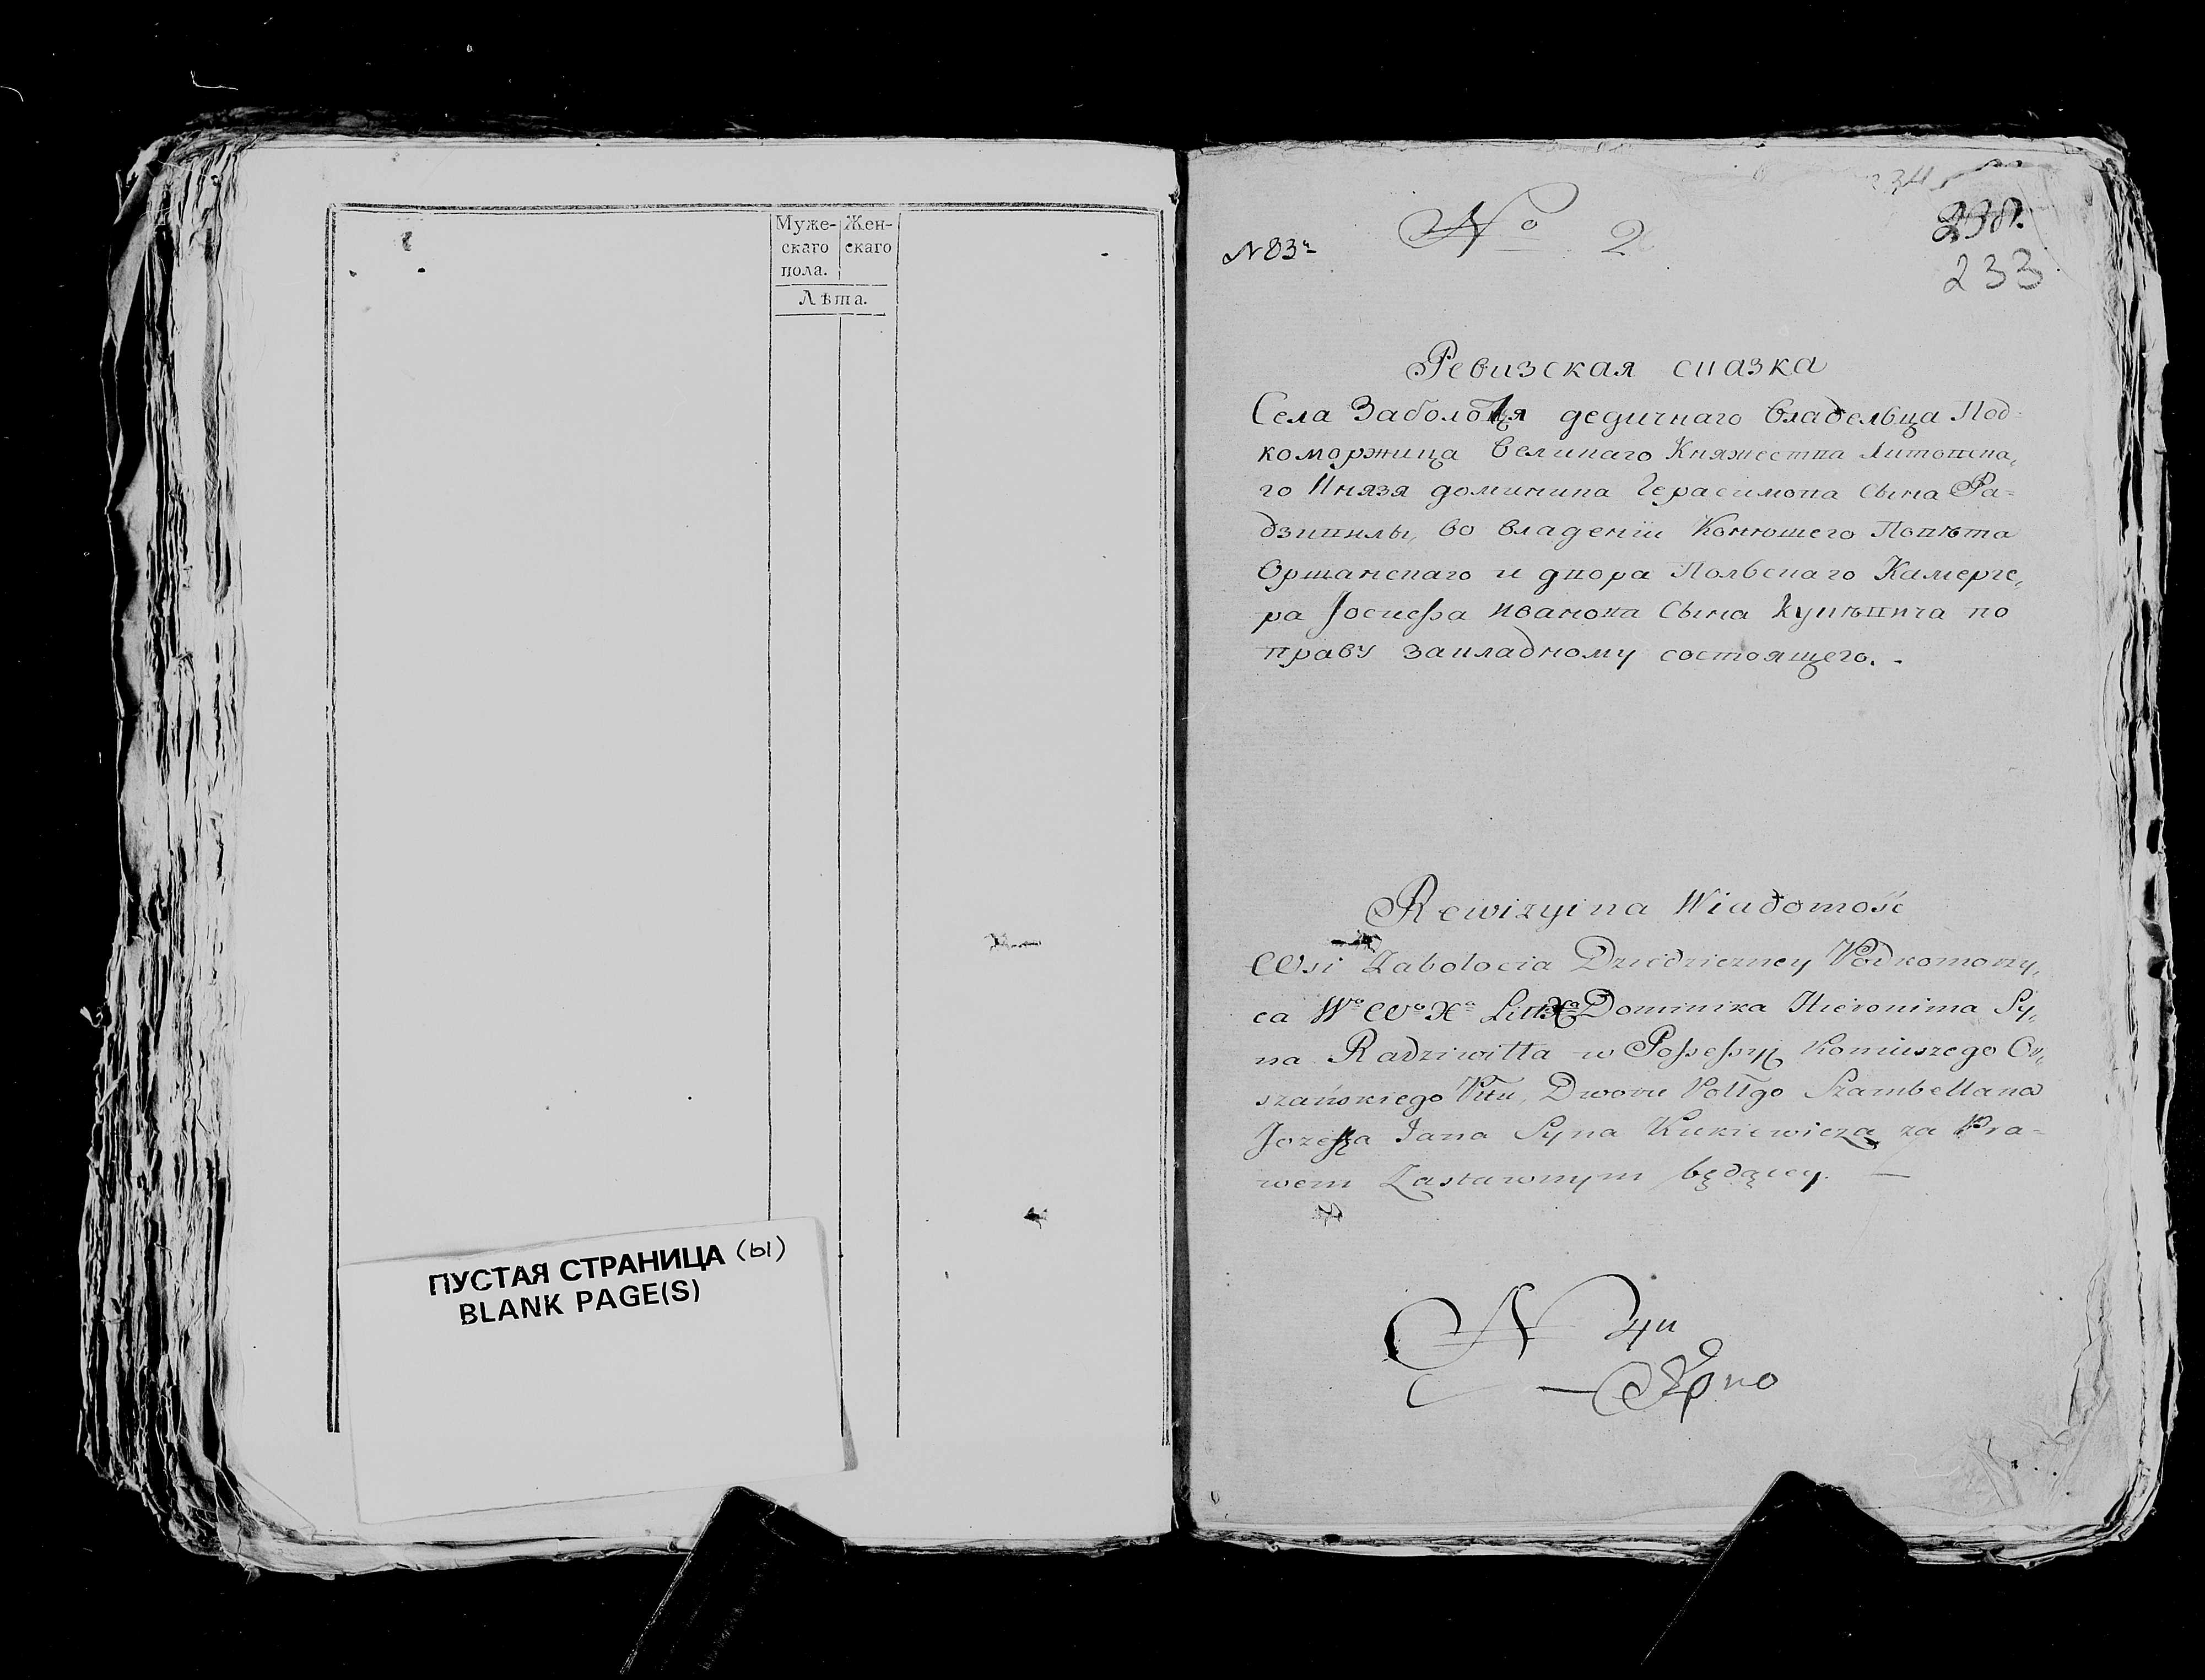 Муже-
скаго
пола.
Жен-
скаго
Лѣта.
ПУСТАЯ СТРАНИЦА (ы)
BLANK PAGE(S)
№ 2
233
Ревизская сказка
Села Заболотя дедичнаго владельца Под-
коморжица Великаго Княжества Литовска,
го Князя доминика Герасимова сына Ра-
дзивилы, во владении Конюшего Повѣта
Оршанскаго и двора Польскаго Камерге,
ра Иосифа Иванова сына Кукѣвича по
праву закладному состоящего.
Rewizyina Wiadomość
Wsi Zabolocia Dziedziczney Podkomorzy,
ca Wo Wo Xa Litt Xa Dominika Hieronima Sy,
na Radziwiłła w Possessyi Koniuszego Or,
szańskiego Pttu, Dworu Polgo Szambellana
Jozeffa Jana Syna Kukiewicza za Pra-
wem Zastawnym będącey. —